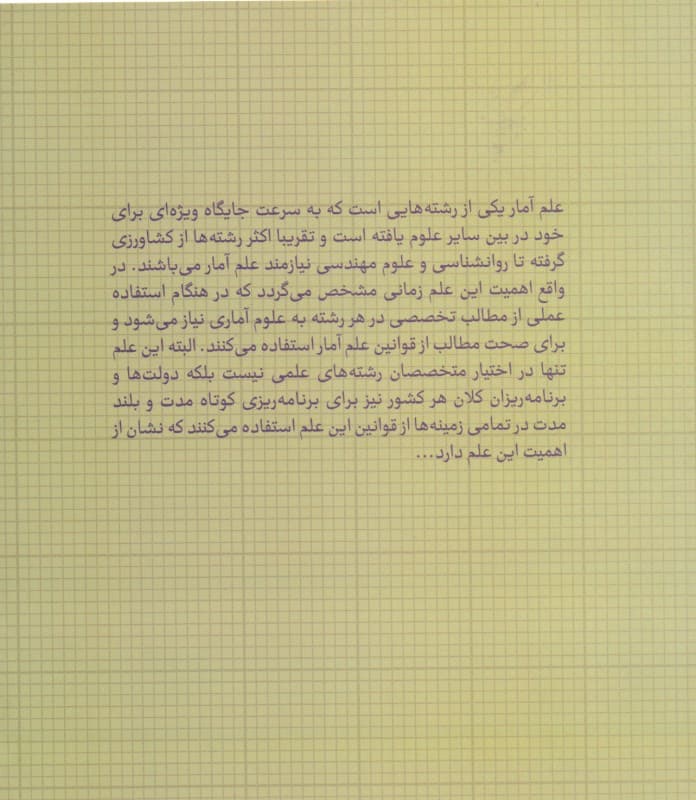 علم آمار یکی از رشته‌هایی است که به سرعت جایگاه ویژه‌ای برای
خود در بین سایر علوم یافته است و تقریبا اکثر رشته‌ها از کشاورزی
گرفته تا روانشناسی و علوم مهندسی نیازمند علم آمار می‌باشند. در
واقع اهمیت این علم زمانی مشخص می‌گردد که در هنگام استفاده
عملی از مطالب تخصصی در هر رشته به علوم آماری نیاز می‌شود و
برای صحت مطالب از قوانین علم آمار استفاده می‌کنند. البته این علم
تنها در اختیار متخصصان رشته‌های علمی نیست بلکه دولت‌ها و
برنامه‌ریزان کلان هر کشور نیز برای برنامه‌ریزی کوتاه مدت و بلند
مدت در تمامی زمینه‌ها از قوانین این علم استفاده می‌کنند که نشان از
اهمیت این علم دارد...